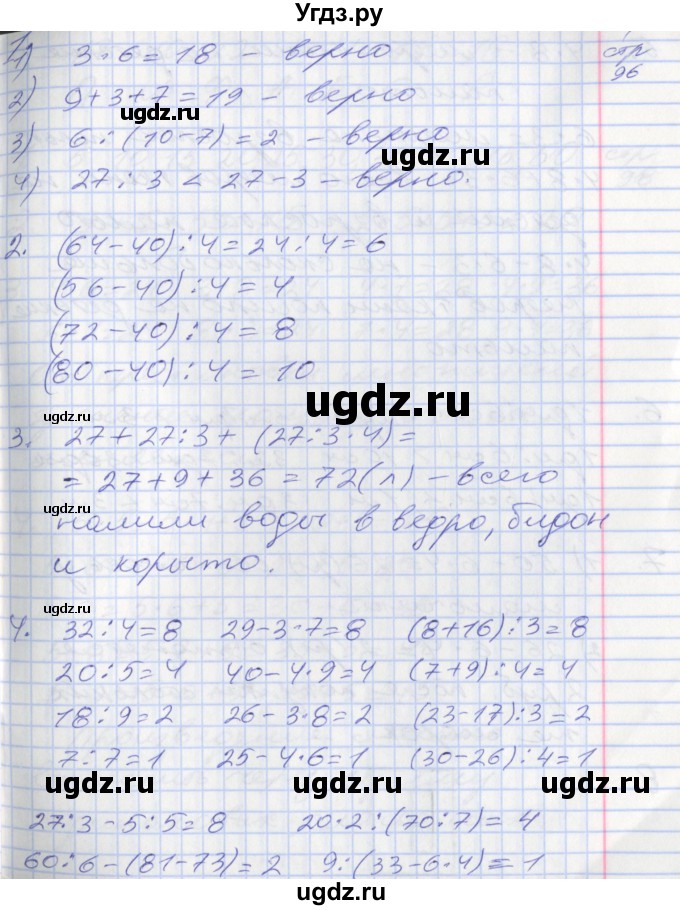 Угдз.ру
1. 1) 3·6=18 – верно
стр 96
2) 9+3+7=19 – верно
3) 6:(10-7)=2 – верно
4) 27:3 < 27-3 – верно.
2. (64-40):4=24:4=6
(56-40):4=4
(72-40):4=8
(80-40):4=10
3. 27+27:3+(27:3·4)=
=27+9+36=72(л) – всего
налили воды в ведро, бидон
и корыто.
4. 32:4=8 29-3·7=8 (8+16):3=8
20:5=4 40-4·9=4 (7+9):4=4
18:9=2 26-3·8=2 (23-17):3=2
7:7=1 25-4·6=1 (30-26):4=1
27:3-5:5=8 20·2:(70:7)=4
60:6-(81-73)=2 9:(33-6·4)=1
ugdz.ru
ugdz.ru
ugdz.ru
ugdz.ru
ugdz.ru
ugdz.ru
ugdz.ru
ugdz.ru
ugdz.ru
ugdz.ru
ugdz.ru
ugdz.ru
ugdz.ru